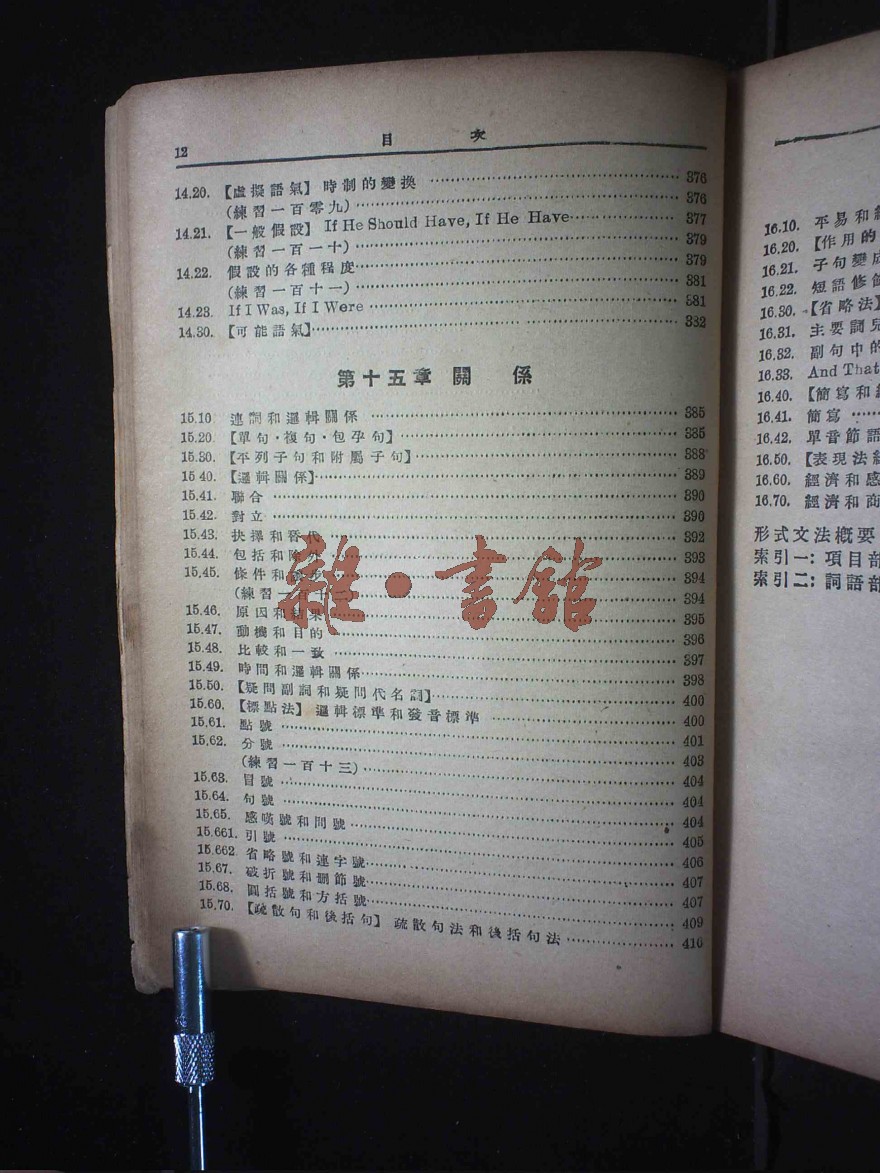 12 目 次
14.20. 【虛擬語氣】 時制的變換 376
(練習一百零九) 376
14.21. 【一般假設】 If He Should Have, If He Have 377
(練習一百一十) 379
14.22. 假設的各種程度 379
(練習一百十一) 381
14.23. If I Was, If I Were 381
14.30. 【可能語氣】 382
第十五章 關 係
15.10 連詞和邏輯關係 385
15.20. 【單句·複句·包孕句】 385
15.30. 【平列子句和附屬子句】 388
15 40. 【邏輯關係】 389
15.41. 聯合 390
15.42. 對立 390
15.43. 抉擇和替代 392
15.44. 包括和除外 393
15.45. 條件和讓步 394
(練習一百十二) 394
15.46. 原因和結果 395
15.47. 動機和目的 396
15.48. 比較和一致 397
15.49. 時間和邏輯關係 398
15.50. 【疑問副詞和疑問代名詞】 400
15.60. 【標點法】 邏輯標準和發音標準 400
15.61. 點號 401
15.62. 分號 403
(練習一百十三) 404
15.63. 冒號 404
15.64. 句號 404
15.65. 感嘆號和問號 405
15.661. 引號 406
15.662 省略號和連字號 407
15.67. 破折號和刪節號 407
15.68. 圓括號和方括號 409
15.70. 【疏散句和後括句】 疏散句法和後括句法 410
雜·書館
16.10. 平易和
16.20. 【作用的
16.21. 子句變成
16.22. 短語修飾
16.30. 【省略法】
16.31. 主要詞兒
16.32. 副句中的
16.33. And That
16.40. 【簡寫和
16.41. 簡寫
16.42. 單音節語
16.50. 【表現法
16.60. 經濟和感
16.70. 經濟和商
形式文法概要
索引一: 項目部
索引二: 詞語部